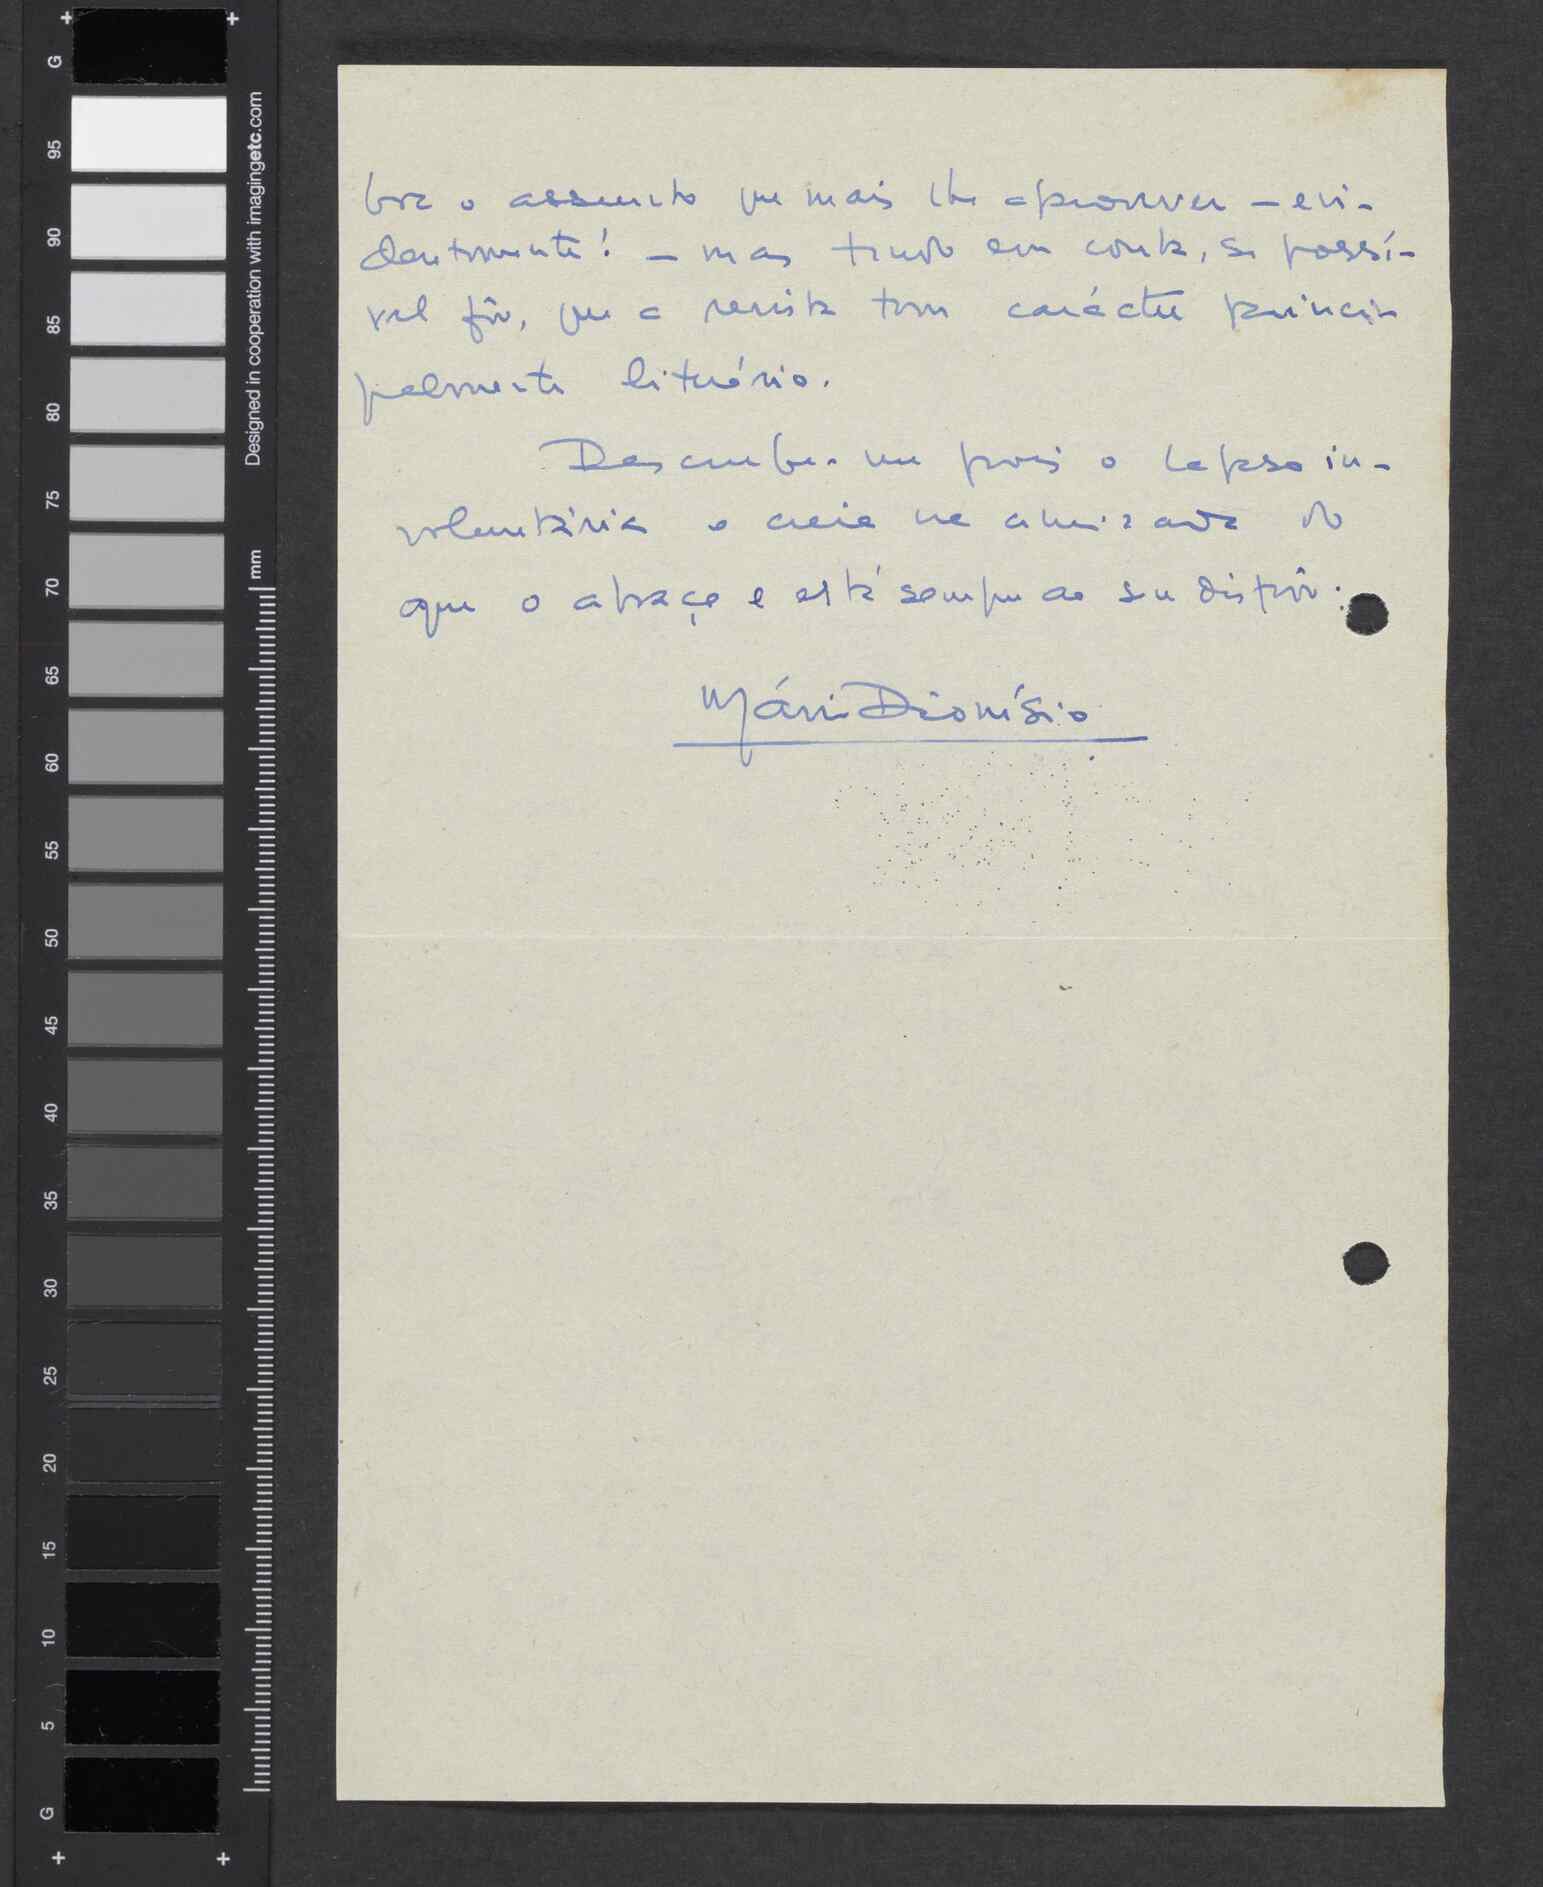 bre o assunto que mais lhe aprouver – evi-
dentemente! – mas tendo em conta, se possí-
vel fôr, que a revista tem carácter princi-
palmente literário.
Desculpe-me pois o lapso in-
voluntário e creia na amizade do
que o abraça e está sempre ao seu dispôr:
Mário Dionísio
G
95
90
85
80
75
70
65
60
55
50
45
40
35
30
25
20
15
10
5
G
Designed in cooperation with imagingetc.com
mm